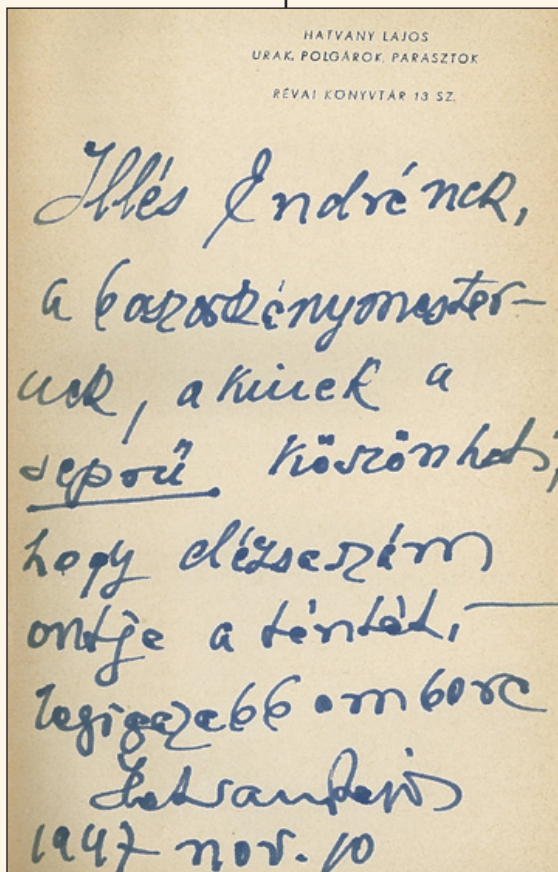 HATVANY LAJOS
URAK, POLGÁROK, PARASZTOK
RÉVAI KÖNYVTÁR 13 SZ.
Illés Endrének,
a boszorkánymester-
nek, akinek a
seprű köszönheti,
hogy dézsaszám
ontja a téntát, —
legigazabb embere
Hatvany Lajos
1947 nov. 10